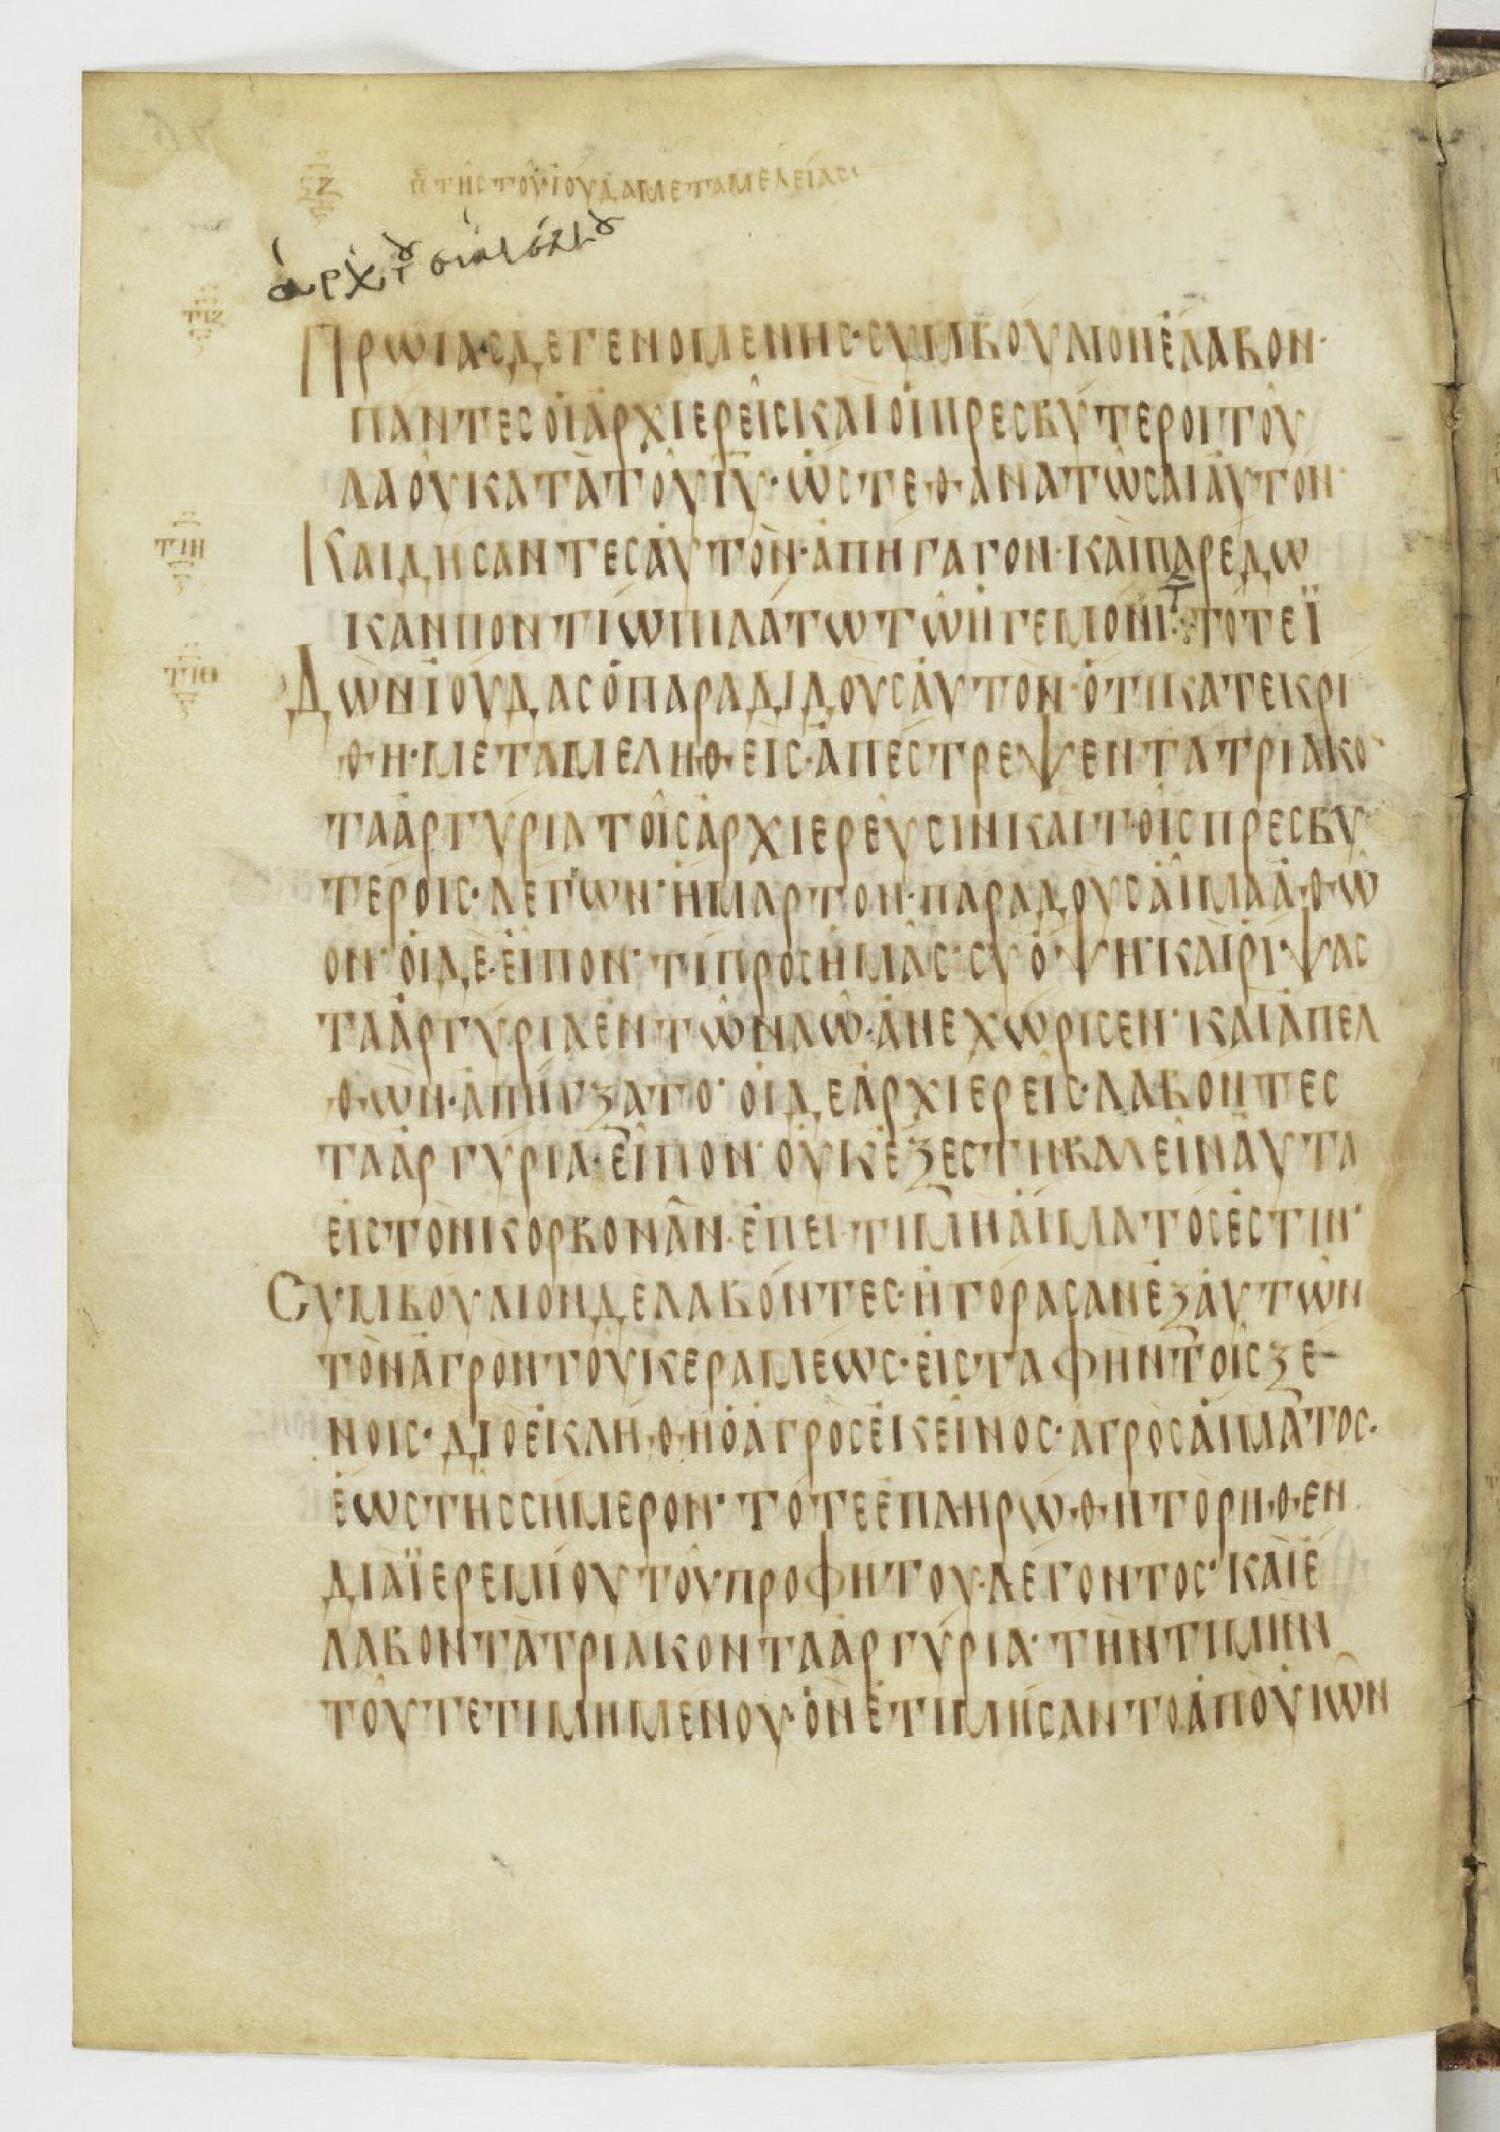 ξζ π̅ τῆς τοῦ ἰούδα μεταμελείας
ἀρχ τοῦ
τιζ
Πρωίας δὲ γενομένης· συμβούλιον ἔλαβον·
πάντες οἱ ἀρχιερεῖς καὶ οἱ πρεσβύτεροι τοῦ
λαοῦ κατὰ τοῦ ιυ̅· ὥστε θανατῶσαι αὐτόν·
τιη
Καὶ δήσαντες αὐτὸν· ἀπήγαγον· καὶ παρέδω
καν ποντίω πιλάτω τῶ ἡγεμόνι· τότε ἰ
τιθ
Δὼν ἰούδας ὁ παραδιδοὺς αὐτὸν· ὅτι κατεκρί
θη· μεταμεληθεὶς· ἀπέστρεψεν τὰ τριάκο̅
τα ἀργύρια τοῖς ἀρχιερεῦσιν καὶ τοῖς πρεσβυ
τέροις· λέγων· ἥμαρτον· παραδοὺς αἷμα ἀθῶ
ον· οἱ δὲ εἶπον· τί πρὸς ἡμᾶς· σὺ ὄψη· καὶ ῥίψας
τὰ ἀργύρια ἐν τῶ ναῶ· ἀνεχώρισεν· καὶ ἀπελ
θὼν· ἀπήγξατο· οἱ δὲ ἀρχιερεῖς· λαβόντες
τὰ ἀργύρια· εἶπον· οὐκ ἔξεστιν βαλεῖν αὐτὰ
εἰς τὸν κορβονᾶν· ἐπεὶ τιμὴ αἵματός ἐστιν·
Συμβούλιον δὲ λαβόντες· ἠγόρασαν ἐξ αὐτῶν
τὸν ἀγρὸν τοῦ κεραμέως· εἰς ταφὴν τοῖς ξέ-
νοις· διὸ ἐκλήθη ὁ ἀγρὸς ἐκεῖνος· ἀγρὸς αἵματος·
ἕως τῆς σήμερον· τότε ἐπληρώθη τὸ ῥηθὲν
διὰ ϊερεμίου τοῦ προφήτου λέγοντος· καὶ ἔ
λαβον τὰ τριάκοντα ἀργύρια· τὴν τιμὴν
τοῦ τετιμημένου· ὃν ἐτιμήσαντο ἀπὸ υἱῶν